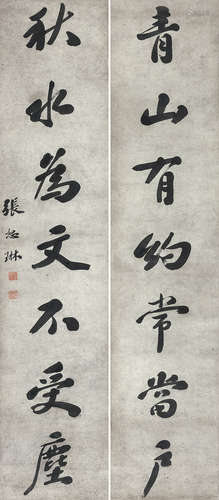 青山有約常當戶
秋水為文不受塵
張恕琳